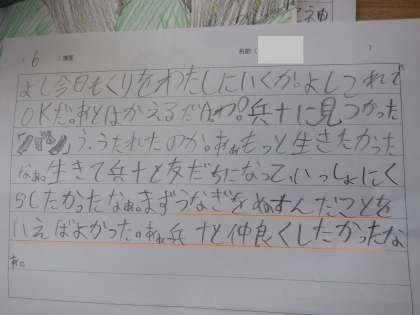 神
6 場面 名前( )
よし今日もくりをわたしにいくか。よしこれで
OKだ。あとはかえるだけ。わ?兵十に見つかった
う、うたれたのか。あぁもっと生きたかった
なぁ。生きて兵十と友だちになって、いっしょにく
らしたかったなぁ。まずうなぎをぬすんだことを
いえばよかった。あぁ兵十と仲良くしたかったな
あ。